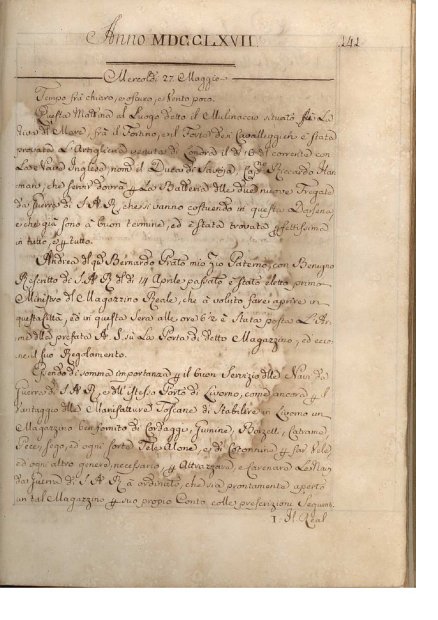 Anno MDCCLXVII.
141
Mercoldì 27. Maggio.
Tempo frà chiaro, e oscuro, e Vento poco.
Questa Mattina al Luogo detto il Mulinaccio situato sù Li-
dio di Mare, frà il Fortino, e il Forte de i Cavalleggieri è stata
provata L'Artiglieria venuta di Londra il dì 16 del corrente con
La Nave Inglese nom. il Duca di Savoja Cap.no Riccardo Har-
man, che servir dovrà p La Batteria delle due nuove Fregate
da Guerra di S. A. R. che si vanno costruendo in questa Darsena,
e che già sono à buon termine, ed è stata trovata pfettissima
in tutto, e p tutto.
Andrea del q. Bernardo Prato mio Zio Paterno, con Benigno
Rescritto di S. A. R. del dì 14 Aprile passato è stato eletto primo
Ministro del Magazzino Reale, che à voluto far aprire in
questa Città, ed in questa Sera alle ore 6 2 è stata posta L'Ar-
me della prefata A. S. sù La Porta di detto Magazzino, ed ecco-
ne il suo Regolamento.
Essendo di somma importanza p il buon Servizio delle Navi da
Guerra di S. A. R., e dell'istesso Porto di Livorno, come ancora p il
Vantaggio delle Manifatture Toscane di Stabilire in Livorno un
Magazzino ben fornito di Cordaggi, Gumine, Bozzelli, Catrame,
Pece, Sego, ed ogni sorte Tele Alone, e di Cotonnine p far Vele,
ed ogni altro genere necessario p Attrazzare, e Carenare Le Navi
da Guerra di S. A. R. à ordinato, che sia prontamente aperto
un tal Magazzino p suo proprio Conto colle prescrizioni Seguenti.
1. Il Real